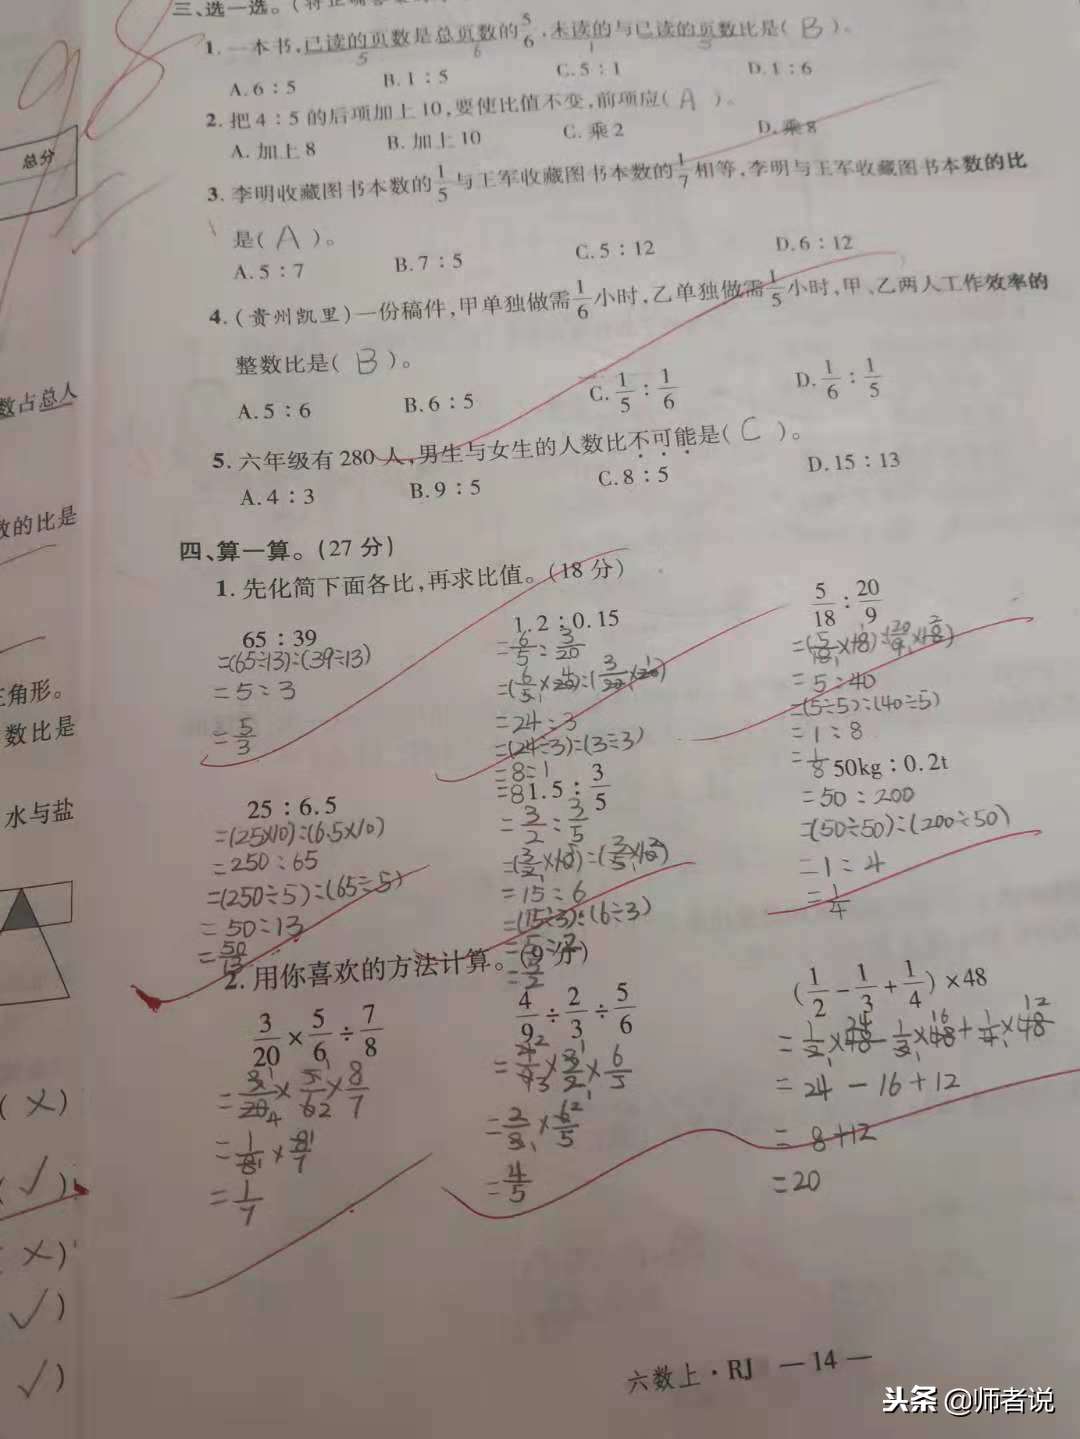 98
总分
数占总人
数的比是
三角形。
数比是
水与盐
( × )
( √ )
( × )
√ )
√ )
三、选一选。
1. 一本书,已读的页数是总页数的5/6,未读的与已读的页数比是( B )。
5 6 1 5
A. 6∶5 B. 1∶5 C. 5∶1 D. 1∶6
2. 把4∶5的后项加上10,要使比值不变,前项应( A )。
A. 加上8 B. 加上10 C. 乘2 D. 乘8
3. 李明收藏图书本数的1/5与王军收藏图书本数的1/7相等,李明与王军收藏图书本数的比
是( A )。
A. 5∶7 B. 7∶5 C. 5∶12 D. 6∶12
4. (贵州凯里)一份稿件,甲单独做需1/6小时,乙单独做需1/5小时,甲、乙两人工作效率的
整数比是( B )。
A. 5∶6 B. 6∶5 C. 1/5∶1/6 D. 1/6∶1/5
5. 六年级有280人,男生与女生的人数比不可能是( C )。
A. 4∶3 B. 9∶5 C. 8∶5 D. 15∶13
四、算一算。(27分)
1. 先化简下面各比,再求比值。(18分)
65∶39
=(65÷13)∶(39÷13)
=5∶3
=5/3
1.2∶0.15
=6/5∶3/20
=(6/5×20)∶(3/20×20)
=24∶3
=(24÷3)∶(3÷3)
=8∶1
=8
5/18∶20/9
=(5/18×18)∶(20/9×18)
=5∶40
=(5÷5)∶(40÷5)
=1∶8
=1/8
25∶6.5
=(25×10)∶(6.5×10)
=250∶65
=(250÷5)∶(65÷5)
=50∶13
=50/13
1.5∶3/5
=3/2∶3/5
=(3/2×10)∶(3/5×10)
=15∶6
=(15÷3)∶(6÷3)
=5∶2
=5/2
50kg∶0.2t
=50∶200
=(50÷50)∶(200÷50)
=1∶4
=1/4
2. 用你喜欢的方法计算。(9分)
3/20×5/6÷7/8
=3/20×5/6×8/7
=1/8×8/7
=1/7
4/9÷2/3÷5/6
=4/9×3/2×6/5
=2/3×6/5
=4/5
(1/2-1/3+1/4)×48
=1/2×48-1/3×48+1/4×48
=24-16+12
=8+12
=20
六数上·RJ —14—
头条 @师者说